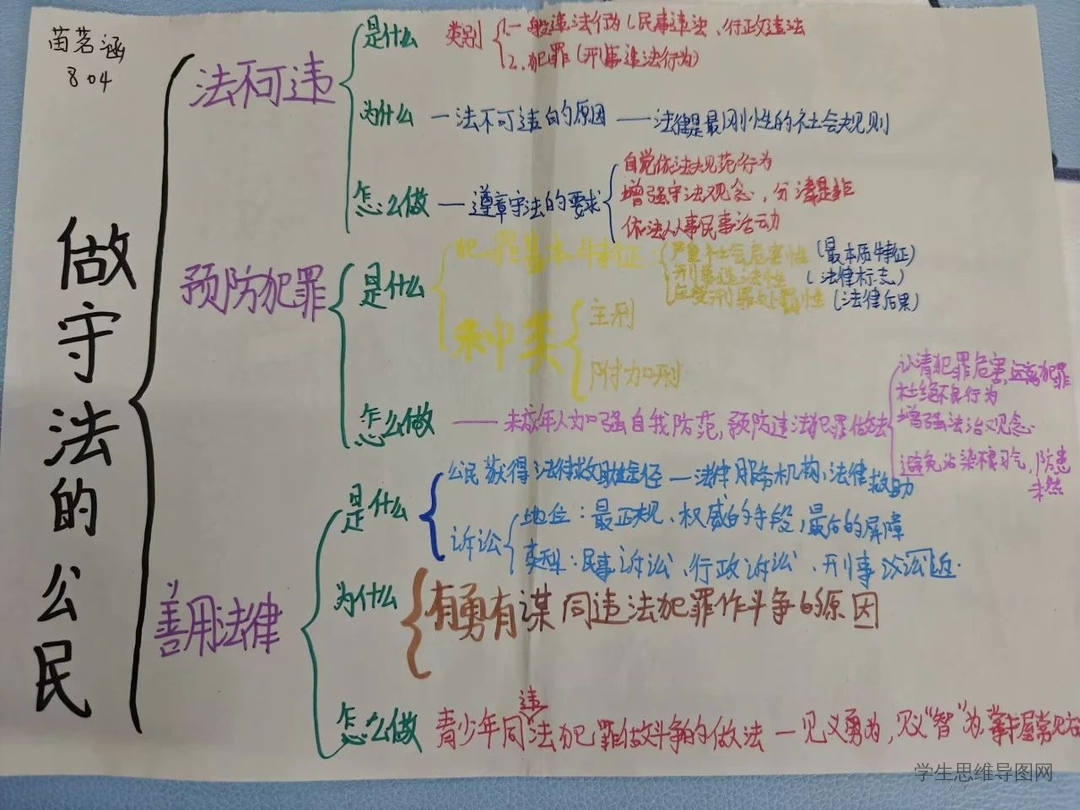 苗茗涵
804
做守法的公民
法不可违
是什么
类别
1.一般违法行为(民事违法、行政违法
2.犯罪(刑事违法行为)
为什么 — 法不可违的原因 — 法律是最刚性的社会规则
怎么做 — 遵章守法的要求
自觉依法规范行为
增强守法观念,分清是非
依法从事民事活动
预防犯罪
是什么
犯罪基本特征:
严重社会危害性(最本质特征)
刑事违法性(法律标志)
应受刑罪处罚性(法律后果)
种类
主刑
附加刑
怎么做 — 未成年人加强自我防范,预防违法犯罪做法
认清犯罪危害,远离犯罪
杜绝不良行为
增强法治观念
避免沾染不良习气,防患
未然
善用法律
是什么
公民获得法律救助途径 — 法律服务机构、法律救助
诉讼
地位:最正规、权威的手段,最后的屏障
类型:民事诉讼、行政诉讼、刑事诉讼
为什么
有勇有谋同违法犯罪作斗争的原因
怎么做
青少年同违法犯罪做斗争的做法 — 见义勇为,见义“智”为
学生思维导图网